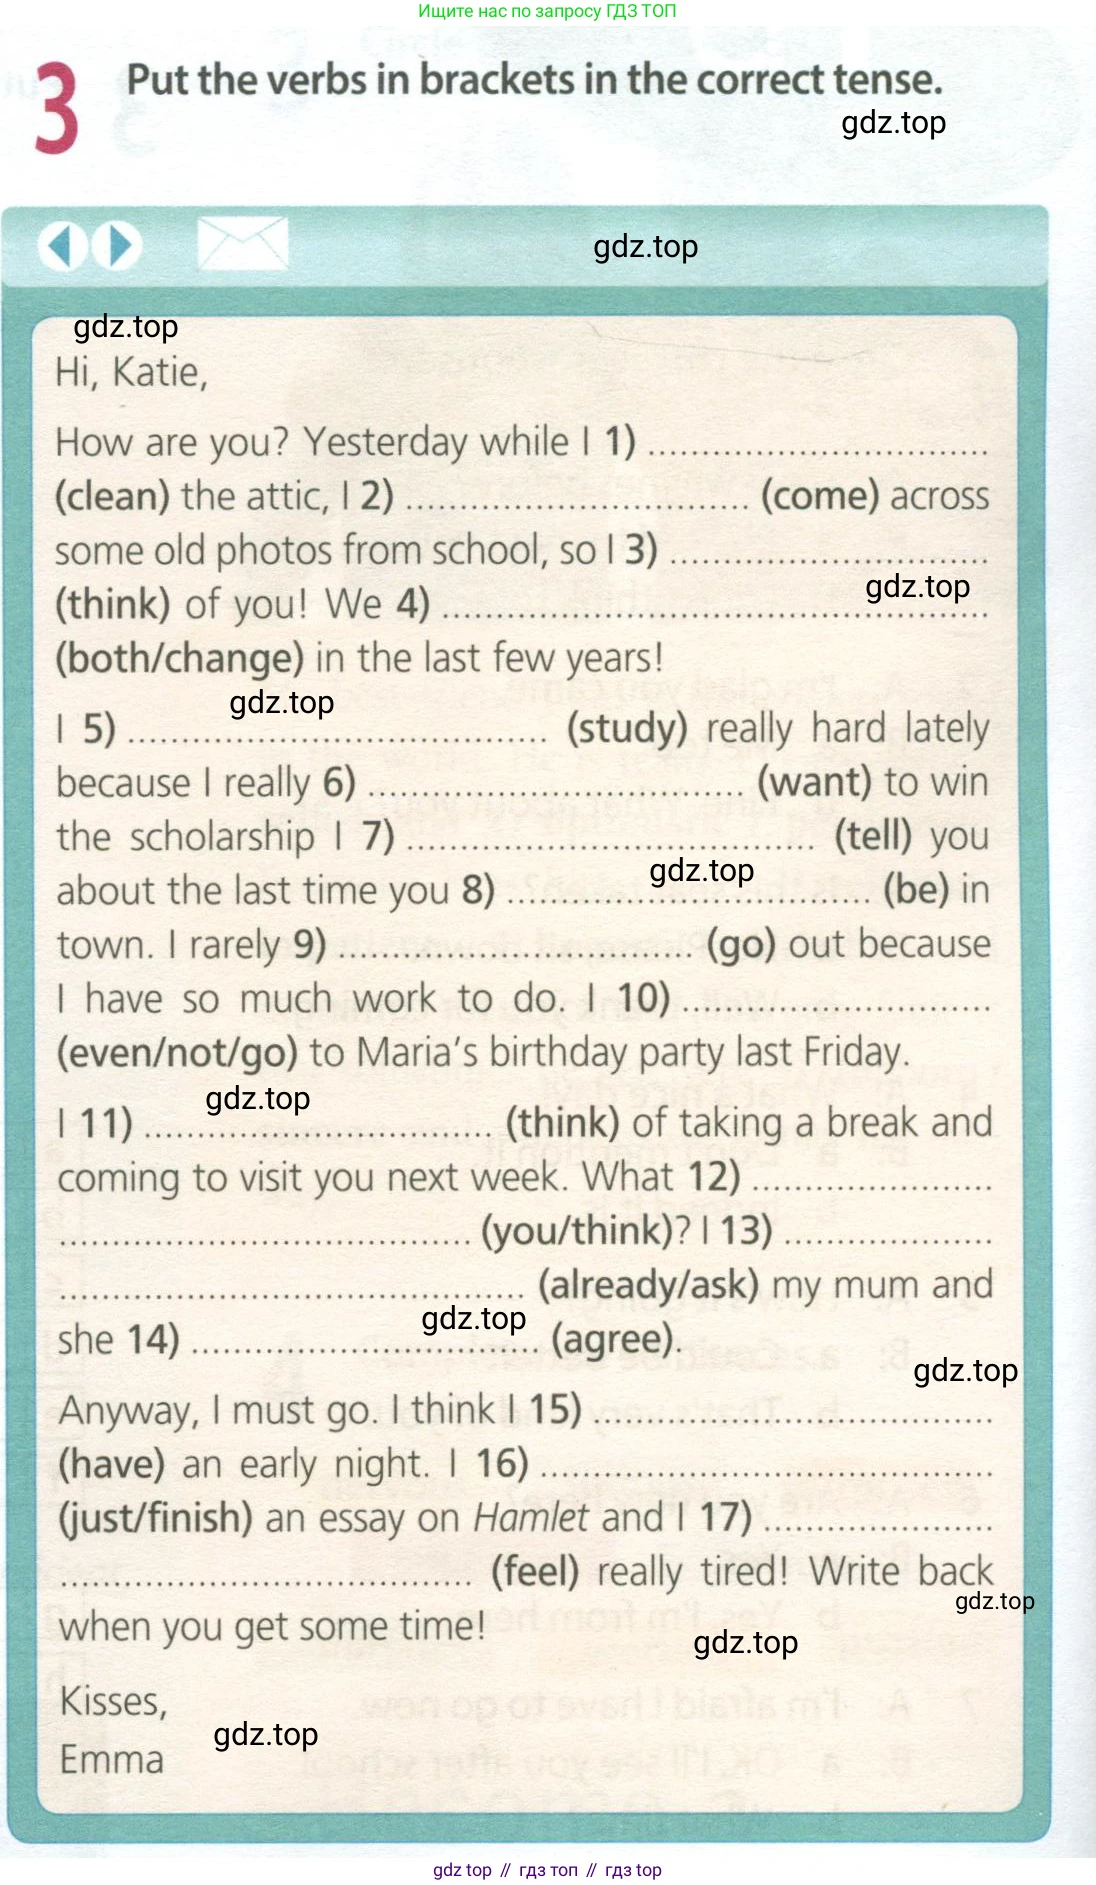 Ищите нас по запросу ГДЗ ТОП
3 Put the verbs in brackets in the correct tense.
gdz.top
gdz.top
gdz.top
Hi, Katie,
How are you? Yesterday while I 1) ................................
(clean) the attic, I 2) ................................ (come) across
some old photos from school, so I 3) ..............................
gdz.top
(think) of you! We 4) ...................................................
(both/change) in the last few years!
gdz.top
I 5) ....................................... (study) really hard lately
because I really 6) ................................... (want) to win
the scholarship I 7) ...................................... (tell) you
gdz.top
about the last time you 8) .................................. (be) in
town. I rarely 9) ................................. (go) out because
I have so much work to do. I 10) .............................
(even/not/go) to Maria's birthday party last Friday.
gdz.top
I 11) ................................. (think) of taking a break and
coming to visit you next week. What 12) .......................
...................................... (you/think)? I 13) ....................
........................................... (already/ask) my mum and
gdz.top
she 14) ................................. (agree).
gdz.top
Anyway, I must go. I think I 15) .....................................
(have) an early night. I 16) ..........................................
(just/finish) an essay on Hamlet and I 17) ......................
...................................... (feel) really tired! Write back
gdz.top
when you get some time!
gdz.top
Kisses,
gdz.top
Emma
gdz top // гдз топ // гдз.top